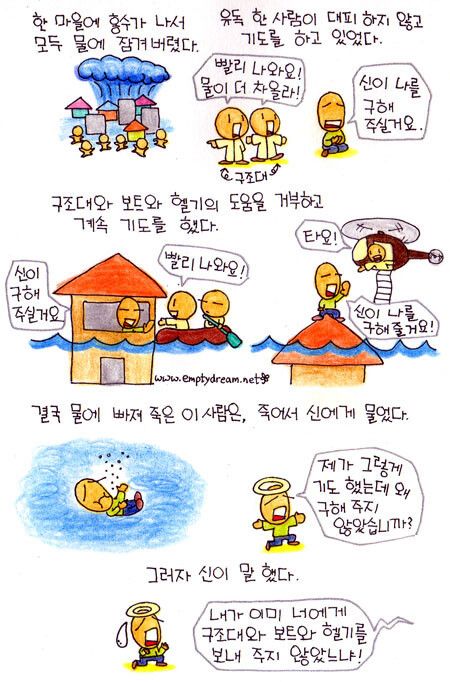 한 마을에 홍수가 나서
모두 물에 잠겨 버렸다.
유독 한 사람이 대피 하지 않고
기도를 하고 있었다.
빨리 나와요!
물이 더 차올라!
구조대
신이 나를
구해
주실거요.
구조대와 보트와 헬기의 도움을 거부하고
계속 기도를 했다.
신이
구해
주실거요
빨리 나와요!
타요!
신이 나를
구해 줄거요!
www.emptydream.net
결국 물에 빠져 죽은 이 사람은, 죽어서 신에게 물었다.
제가 그렇게
기도 했는데 왜
구해 주지
않았습니까?
그러자 신이 말 했다.
내가 이미 너에게
구조대와 보트와 헬기를
보내 주지 않았느냐!